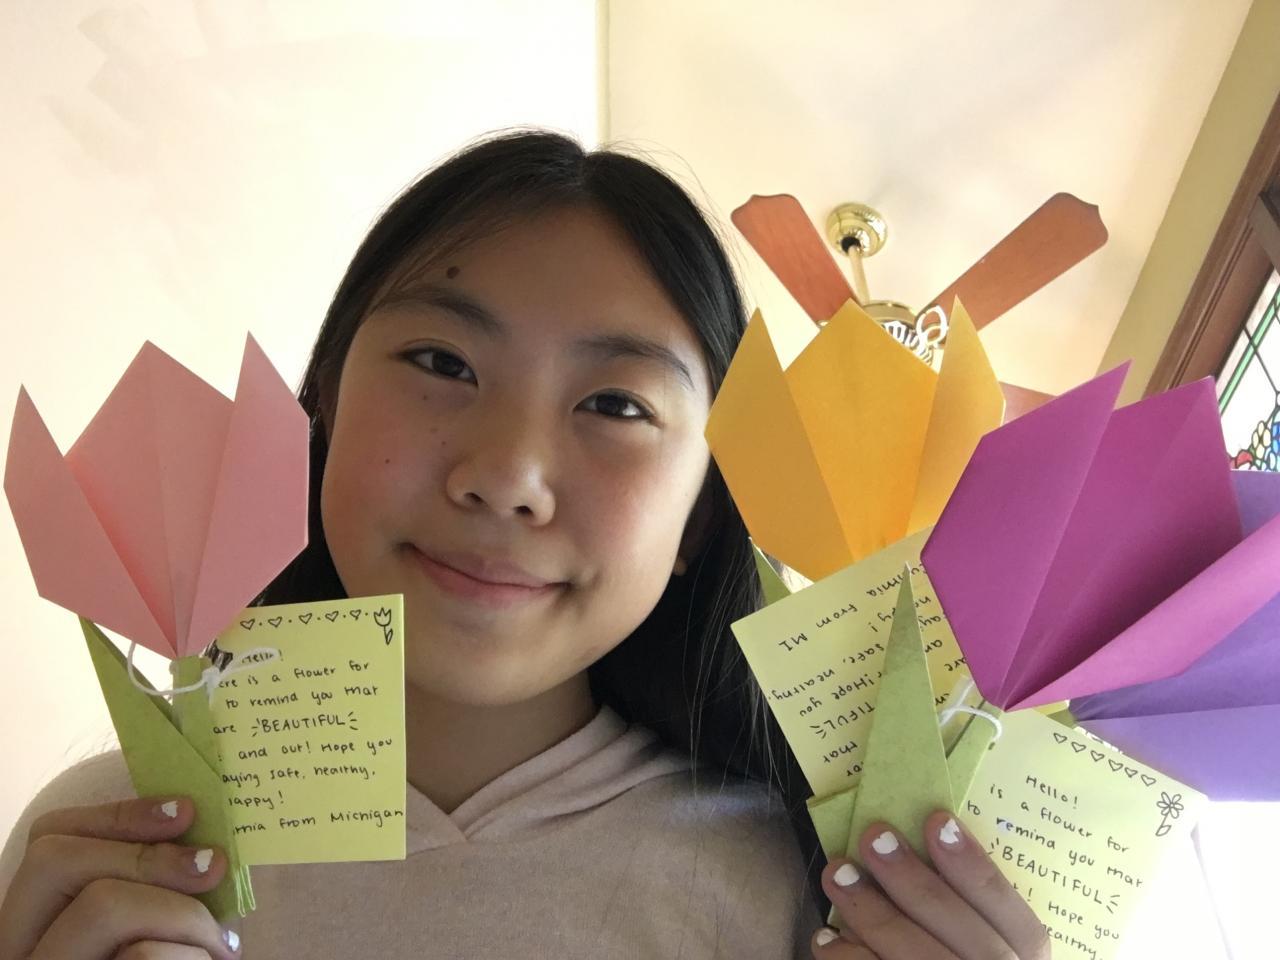 Hello!
ere is a flower for
to remind you that
are BEAUTIFUL
and out! Hope you
aying safe, healthy,
happy!
rnia from Michigan
from MI
safe, healthy,
Hope you
TIFUL
that
for
Hello!
is a flower for
to remind you that
BEAUTIFUL
t! Hope you
healthy,